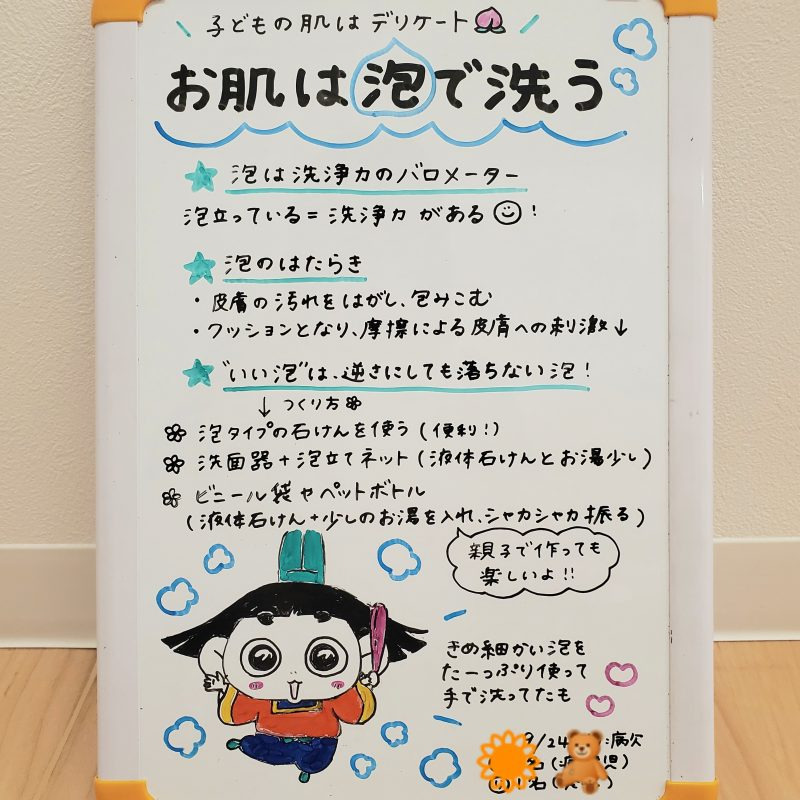 子どもの肌はデリケート
お肌は泡で洗う
泡は洗浄力のバロメーター
泡立っている=洗浄力がある!
泡のはたらき
・皮膚の汚れをはがし、包みこむ
・クッションとなり、摩擦による皮膚への刺激↓
"いい泡"は、逆さにしても落ちない泡!
↓つくり方
泡タイプの石けんを使う(便利!)
洗面器+泡立てネット(液体石けんとお湯少し)
ビニール袋やペットボトル
(液体石けん+少しのお湯を入れ、シャカシャカ振る)
親子で作っても
楽しいよ!!
きめ細かい泡を
たーっぷり使って
手で洗ってたも
9/24 :病欠
名( 児)
名( )